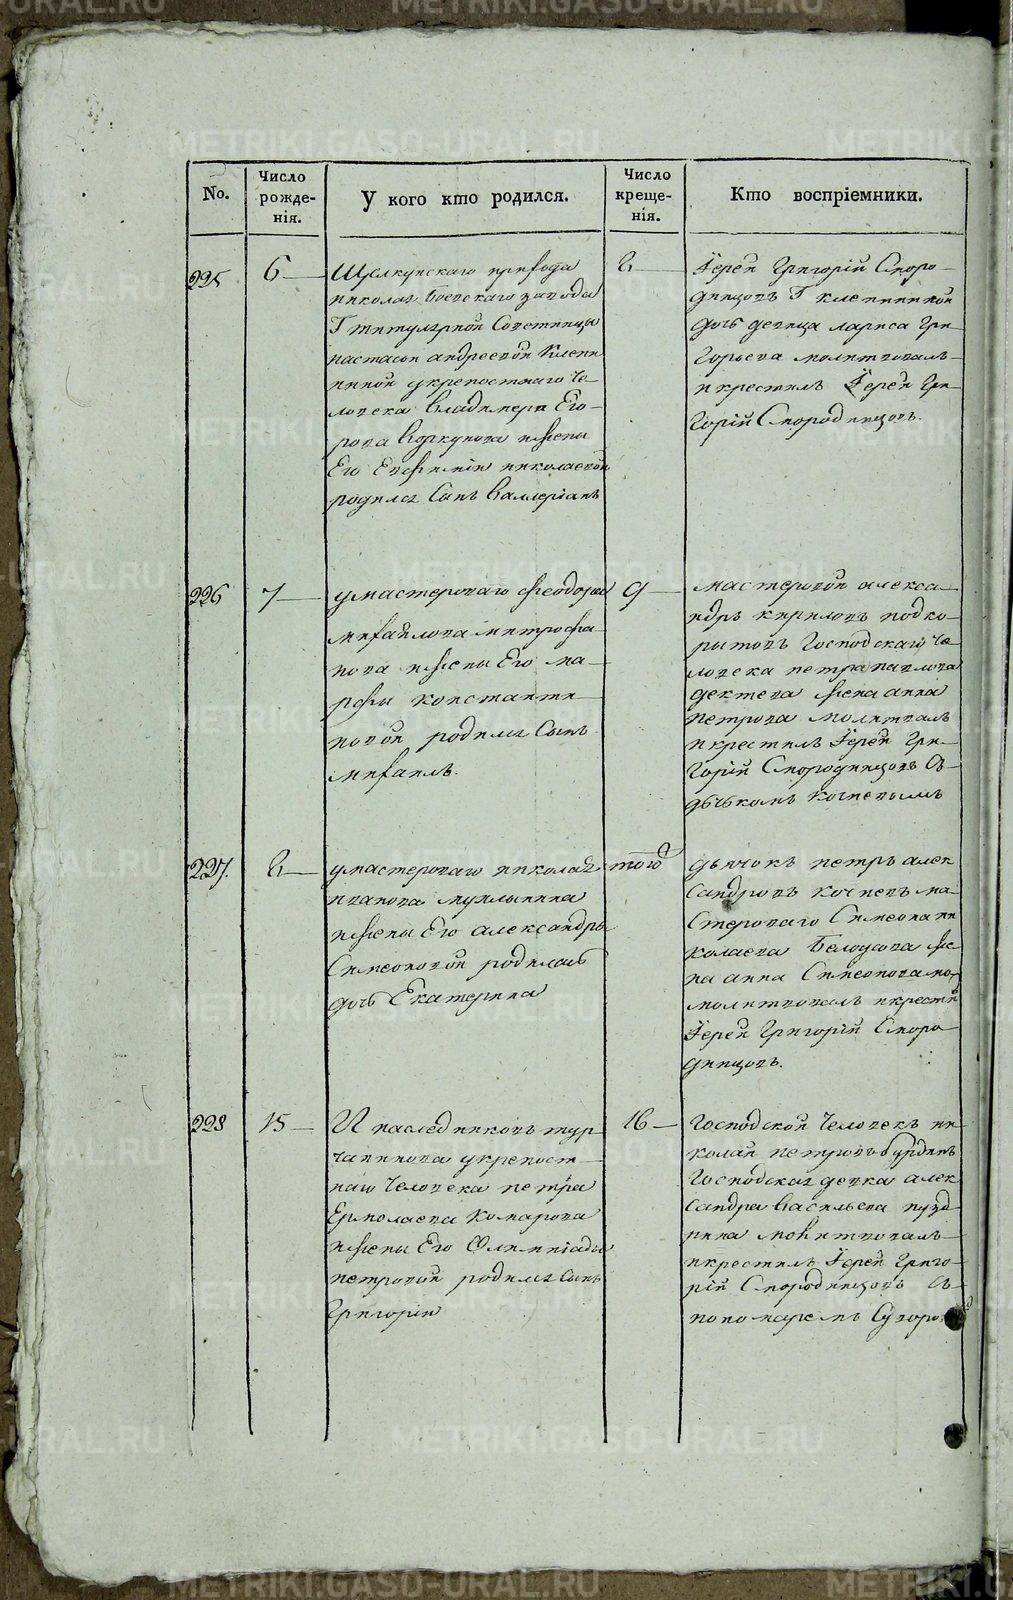 METRIKI.GASO-URAL.RU
No.
Число
рожде-
нія.
У кого кто родился.
Число
креще-
нія.
Кто воспріемники.
225
6
Щелкунскаго прихода
николае Боевскаго завода
Г титулярной Советницы
настасьи андреевой Клепи
ниной у крепостнаго че-
ловека Владимера Его-
рова Коркунова и жены
Его Евфиміи николаевой
родился Сынъ Валлеріанъ
Іерей Григорій Сморо-
динцовъ Г клепининой
дочь девица лариса Гри
горьева молитвовалъ
и крестилъ Іерей Гри-
горій Смородинцовъ.
226
7
у мастероваго Феодора
михайлова митрофа-
нова и жены Его ма-
рфы константи
новой родился Сынъ
михаилъ.
9
мастеровой алекса-
ндръ кириловъ подко-
рытовъ Господскаго че
ловека петра павлова
дектева жена анна
петрова молитвалъ
и крестилъ Іерей Гри-
горій Смородинцовъ Съ
дьячкомъ кочневымъ
227.
у мастероваго николая
иванова мухлынина
и жены Его александры
Симеоновой родилась
дочь Екатерина
того
дьячокъ петръ алек
сандровъ кочневъ ма-
стероваго Симеона ни
колаева Белоусова же
на анна Симеонова
молитвовалъ и крести
Іерей Григорій Сморо-
динцовъ.
228
15
И наследниковъ тур-
чанинова у крепост-
наго человека петра
Ермолаева комарова
и жены Его Олимпіады
петровой родился Сынъ
Григорій
16
Господской человекъ ни-
колай петровъ Бурдинъ
Господская девка алек
сандра васильева пузд
рина молитвовалъ
и крестилъ Іерей Григо-
рій Смородинцовъ Съ
пономаремъ Суворо